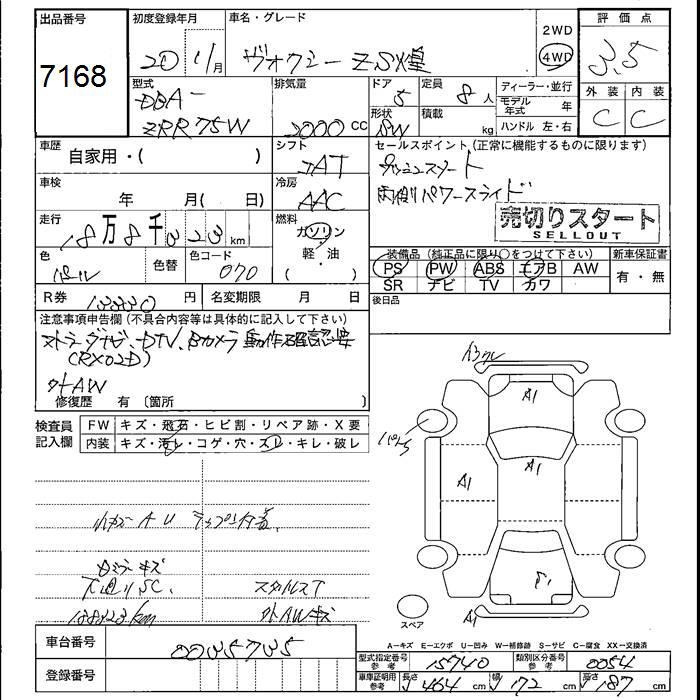 出品番号 初度登録年月 車名・グレード 評価点
7168 20 11月 ヴォクシー ZS煌 2WD 4WD 3.5
型式 排気量 ドア 定員 ディーラー・並行 外装 内装
DBA- ZRR75W 2000 CC 5 8人 モデル年式 年 C C
形状 積載 kg ハンドル 左・右
車歴 シフト セールスポイント(正常に機能するものに限ります)
自家用・( ) IAT プッシュスタート
車検 冷房 両側パワースライド
年 月( 日) AAC
走行 燃料 売切りスタート
18万8千323km ガソリン SELLOUT
軽・油
( )
色 色替 色コード 装備品(純正品に限り○をつけて下さい) 新車保証書
パール 070 PS PW ABS エアB AW 有・無
SR ナビ TV カワ
R券 13330円 名変期限 月 日 後日品
注意事項申告欄(不具合内容等は具体的に記入して下さい)
ストラーダナビ、DTV、Bカメラ動作確認要
(RX02D)
外AW
修復歴 有〔箇所 〕
検査員記入欄 FW キズ・飛石・ヒビ割・リペア跡・X要
内装 キズ・汚レ・コゲ・穴・スレ・キレ・破レ
A1
A1
A1
A1
A1
スペア
下廻りSC. スタッドレスT
188323km 外AWキズ
A−キズ E−エクボ U−凹み W−補修跡 S−サビ C−腐食 XX−交換済
車台番号 0035735
登録番号
型式指定番号参考 15740 類別区分番号参考 0054
車庫証明用参考 長さ 464 cm 幅 172 cm 高さ 187 cm